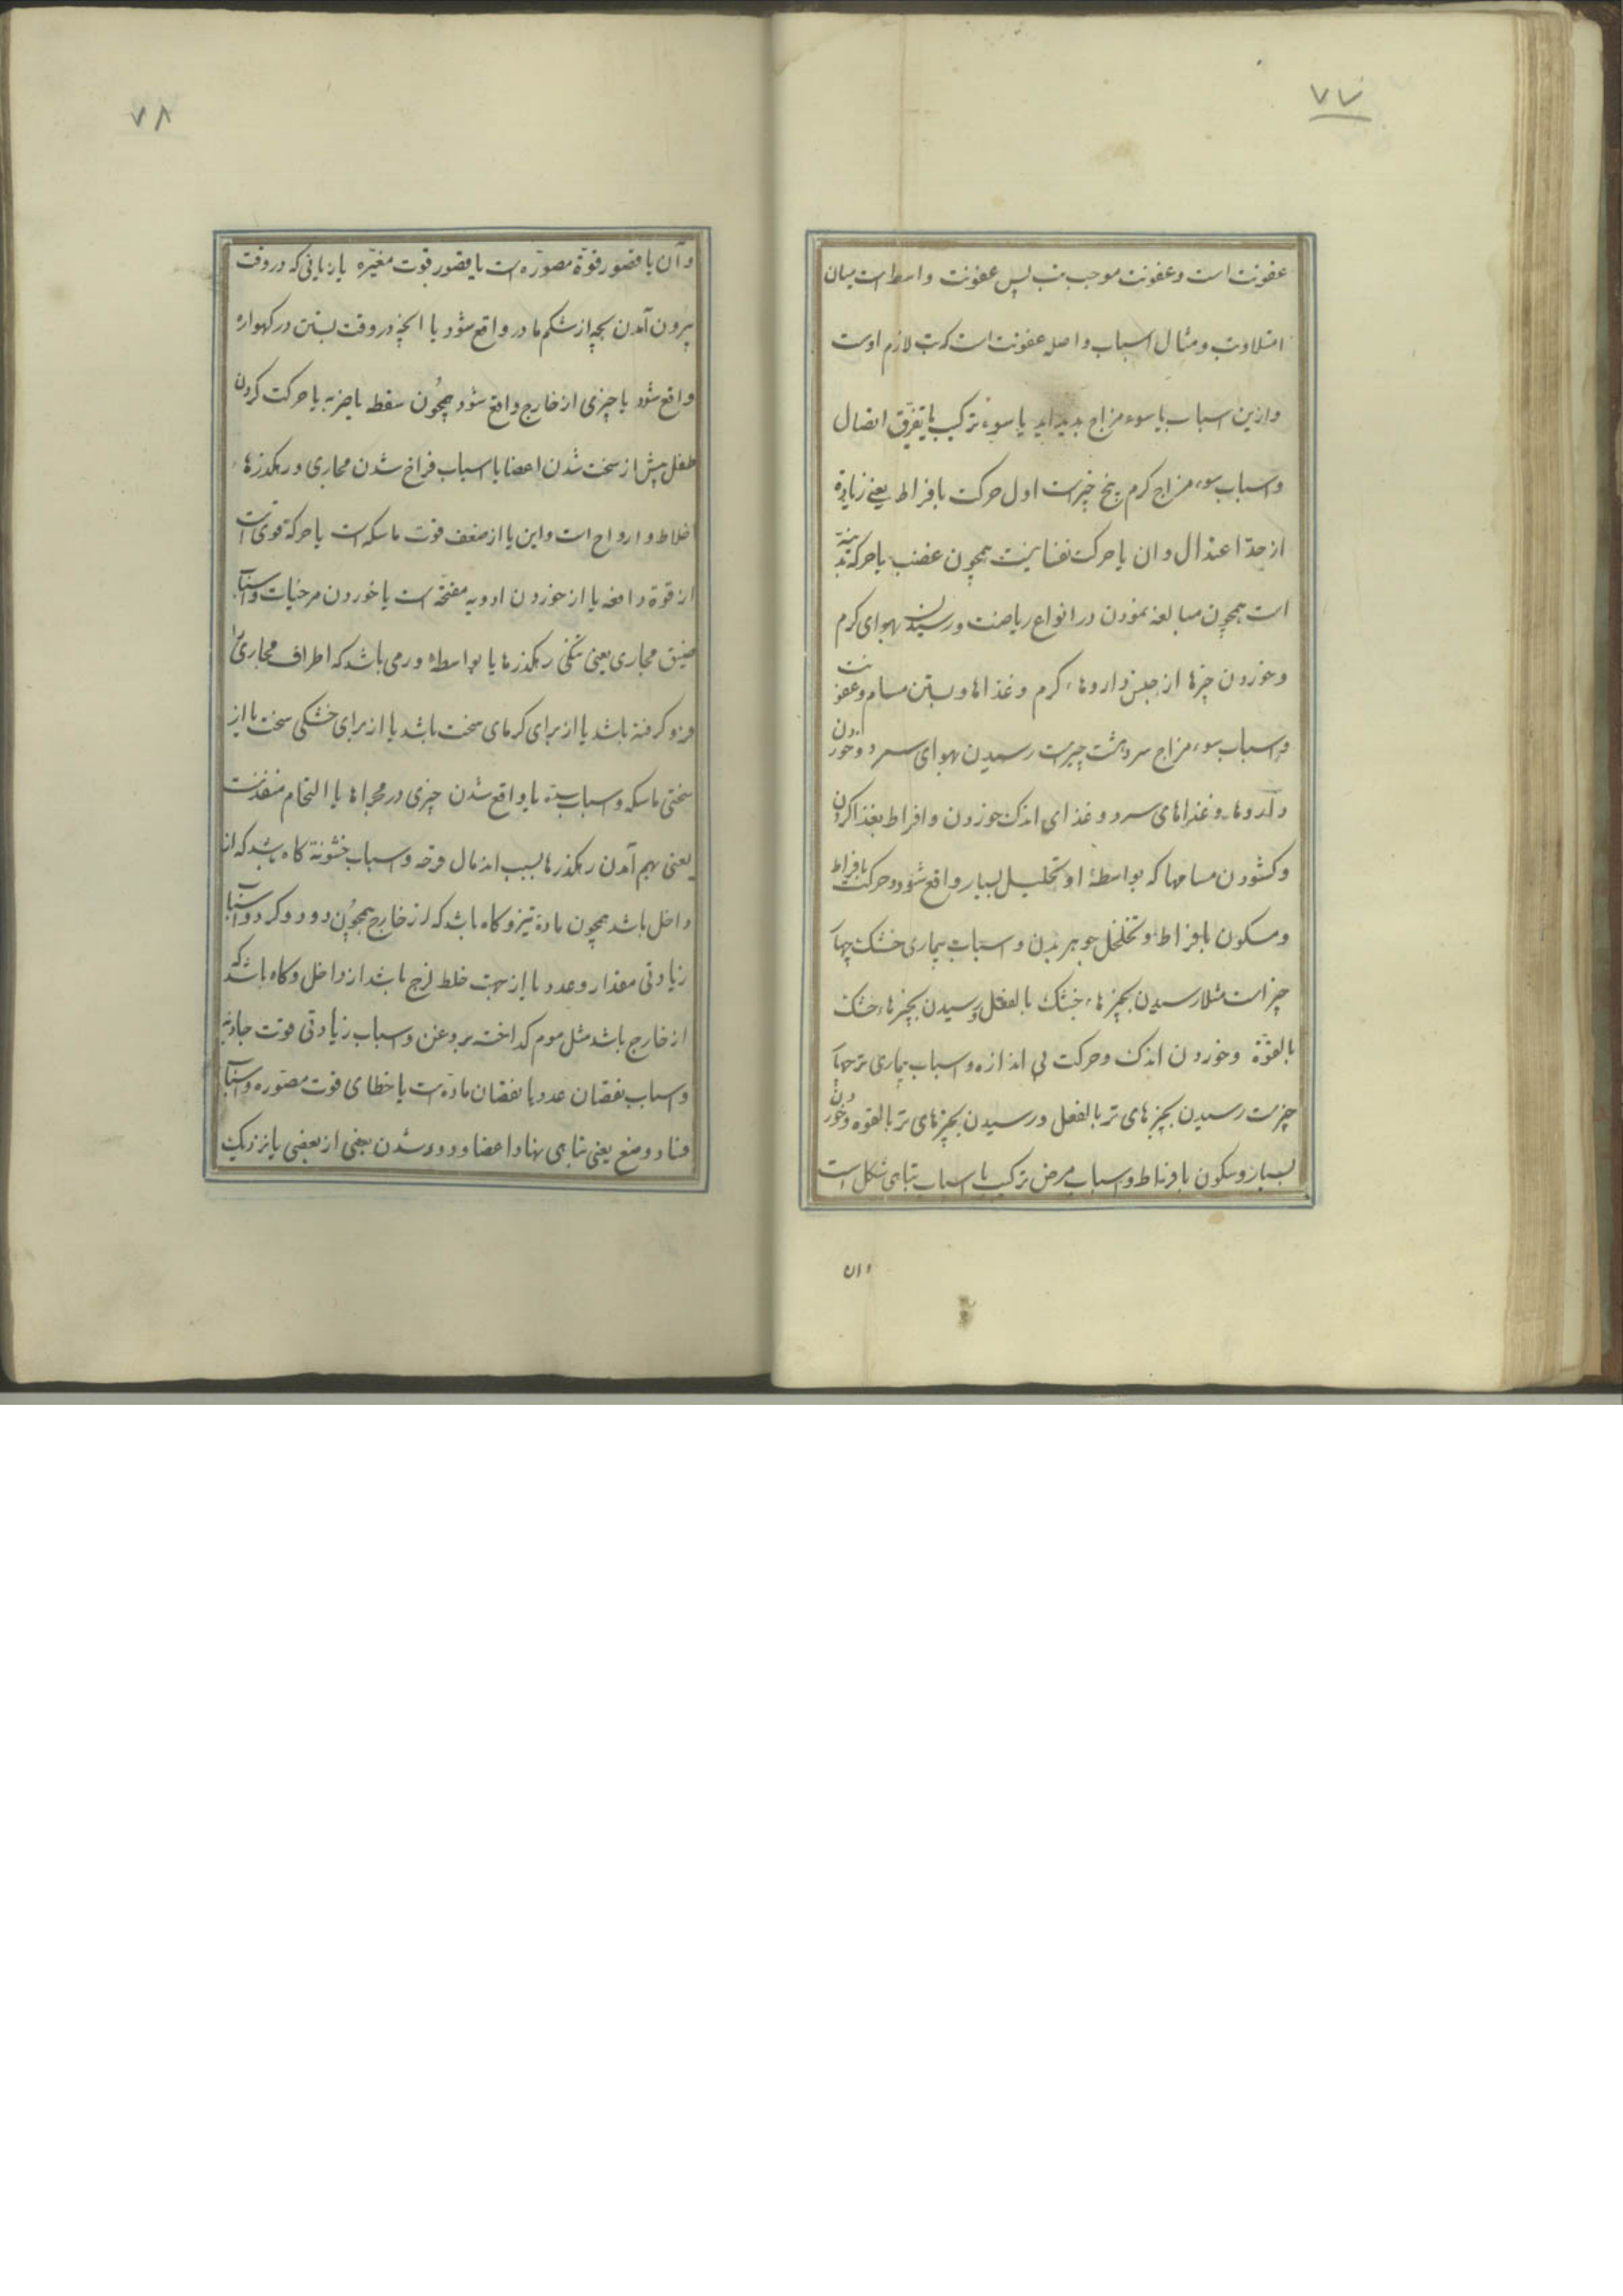 ۷۷
عفونت است و عفونت موجب تب پس عفونت واسطه است میان
امتلا و تب و مثال اسباب واصله عفونت است که تب لازم اوست
و ازین اسباب یا سوء مزاج بدید اید یا سوء ترکیب یا تفرّق اتصال
و اسباب سوء مزاج کرم پنج چیزست اول حرکت بافراط یعنی زیاده
از حدّ اعتدال و ان یا حرکت نفسانیست همچون غضب یا حرکة بدنیة
است همچون مبالغه نمودن در انواع ریاضت و رسیدن بهوای کرم
و خوردن چیزها از جنس داروهاء کرم و غذاها و بستن مسام و عفونت
و اسباب سوء مزاج سرد هشت چیزست رسیدن بهوای سرد و خوردن
داروها و غذاهای سرد و غذای اندک خوردن و افراط بغذا کردن
و کشودن مسامها که بواسطهٔ او تحلیل بسیار واقع شود و حرکت بافراط
و سکون بافراط و تخلخل جوهر بدن و اسباب بیماری خشک چهار
چیز است مثلا رسیدن بچیزهاء خشک بالفعل و رسیدن بچیزهاء خشک
بالقوّة و خوردن اندک و حرکت بی اندازه و اسباب بیماری تر چهار
چیزست رسیدن بچیزهای تر بالفعل و رسیدن بچیزهای تر بالقوه و خوردن
بسیار و سکون بافراط و اسباب مرض ترکیب یا اسباب تباهی شکل است
و ان
۷۸
و آن یا قصور قوّة مصوّره است یا قصور قوت مغیّره یا زیانی که در وقت
بیرون آمدن بچه از شکم مادر واقع شود یا انچه در وقت بستن در کهواره
واقع شود یا چیزی از خارج واقع شود همچون سقطه یا ضربه یا حرکت کردن
طفل پیش از سخت شدن اعضا یا اسباب فراخ شدن مجاری و رهکذرهاء
اخلاط و ارواح است و این یا از ضعف قوت ماسکه است یا حرکة قوی است
از قوة دافعه یا از خوردن ادویه مفتحه است یا خوردن مرخیات و اسباب
ضیق مجاری یعنی تنکی رهکذرها یا بواسطهٔ ورمی باشد که اطراف مجاری را
فرو کرفته باشد یا از برای کرمای سخت باشد یا از برای خشکی سخت یا از
سختی ماسکه و اسباب سدّه یا واقع شدن چیزی در مجراها یا التحام منفذست
یعنی بهم آمدن رهکذرها بسبب اندمال قرحه و اسباب خشونة کاه باشد که از
داخل باشد همچون مادة تیز و کاه باشد که از خارج همچون دود و کرد و اسباب
زیادتی مقدار و عدد یا از جهت خلط لزج باشد از داخل و کاه باشد که
از خارج باشد مثل موم کداخته بروغن و اسباب زیادتی قوت جاذبه
و اسباب نقصان عدد یا نقصان مادّه است یا خطای قوت مصوّره و اسباب
فساد وضع یعنی تباهی نهاد اعضا و دور شدن بعضی از بعضی یا نزدیک